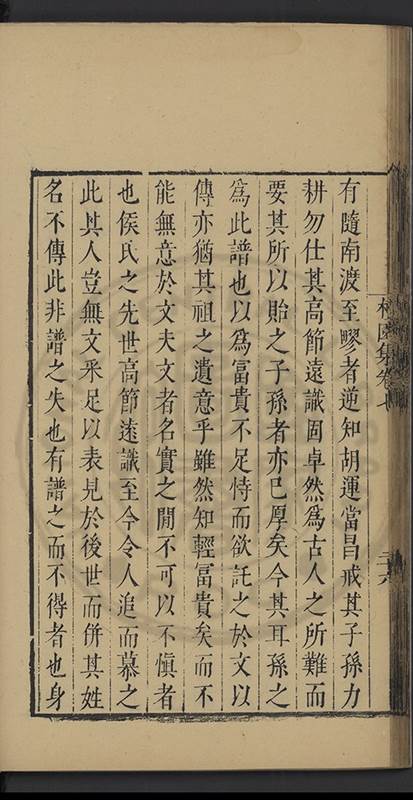 有隨南渡至嵺者逆知胡運當昌戒其子孫力
耕勿仕其高節遠識固卓然爲古人之所難而
要其所以貽之子孫者亦已厚矣今其耳孫之
爲此譜也以爲冨貴不足恃而欲託之於文以
傳亦猶其祖之遺意乎雖然知輕冨貴矣而不
能無意於文夫文者名實之閒不可以不愼者
也侯氏之先世高節逺識至今令人追而慕之
此其人豈無文采足以表見於後世而併其姓
名不傳此非譜之失也有譜之而不得者也身